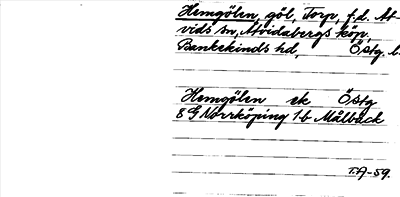 Hemgölen, göl, Torp, f.d. Åt-
vids sn, Åtvidabergs köp.
Bankekinds hd, Östg. l.
Hemgölen ek Östg
8 G Norrköping 1 b Målbäck
T.A-59.